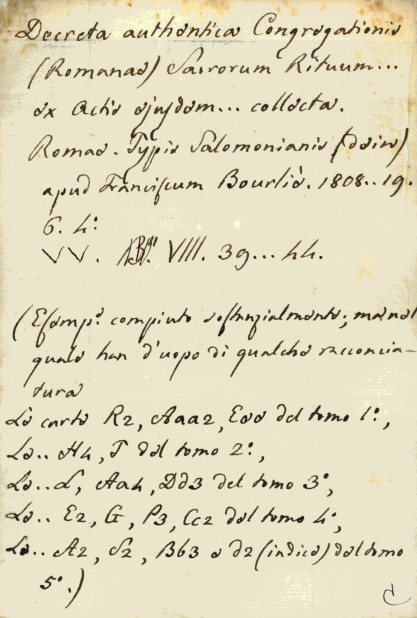 Decreta authentica Congregationis
(Romanae) Sacrorum Rituum...
ex Actis ejusdem... collecta.
Romae. Typis Salomonianis (dein)
apud Franciscum Bourliè. 1808..19.
6. 4º
VV. VIII. 39...44.
(Esemp.º compiuto sostanzialmente; ma nel
quale han d'uopo di qualche racconcia-
tura
Le carte R2, Aaa2, Eee del tomo 1º,
Le.. H4, T del tomo 2º,
Le.. L, Aa4, Dd3 del tomo 3º,
Le.. E2, G, P3, Cc2 del tomo 4º,
Le.. A2, S2, Bb3 e d2 (indice) del tomo
5º.)